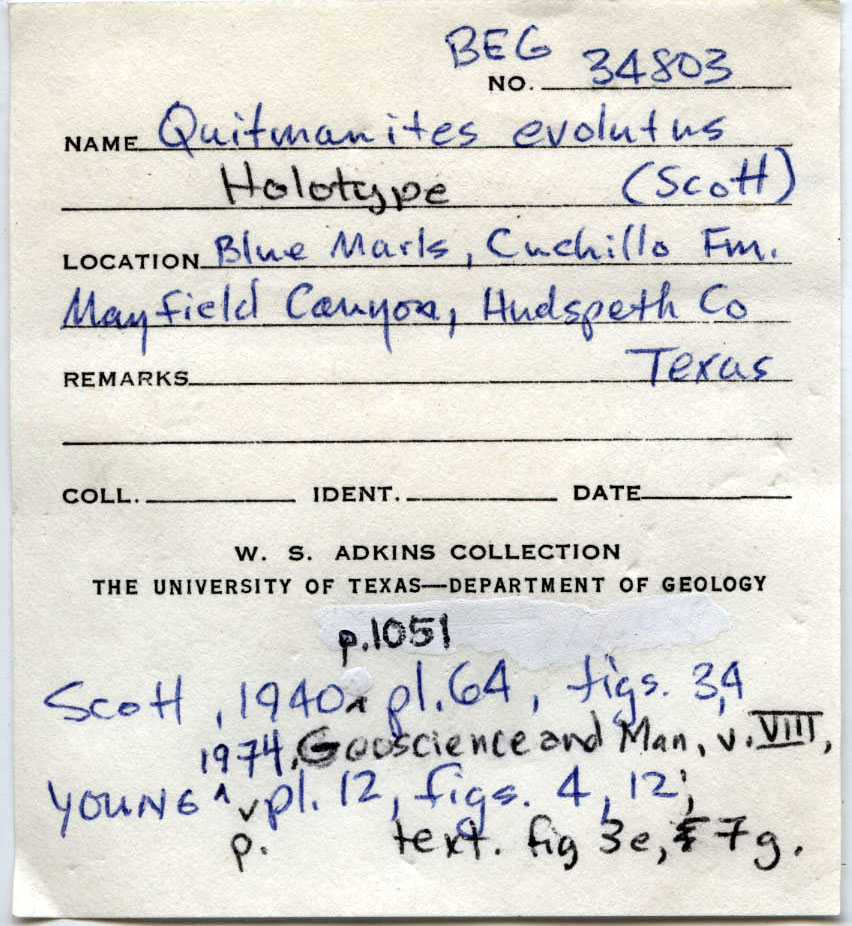 BEG
NO. 34803
NAME Quitmanites evolutus
Holotype (Scott)
LOCATION Blue Marls, Cuchillo Fm.
Mayfield Canyon, Hudspeth Co
REMARKS Texas
COLL. IDENT. DATE
W. S. ADKINS COLLECTION
THE UNIVERSITY OF TEXAS—DEPARTMENT OF GEOLOGY
p.1051
Scott, 1940 ^ pl.64, figs. 3,4
1974, Geoscience and Man, v. VIII,
YOUNG ^ v pl. 12, figs. 4, 12;
p. text. fig 3e, & 7g.